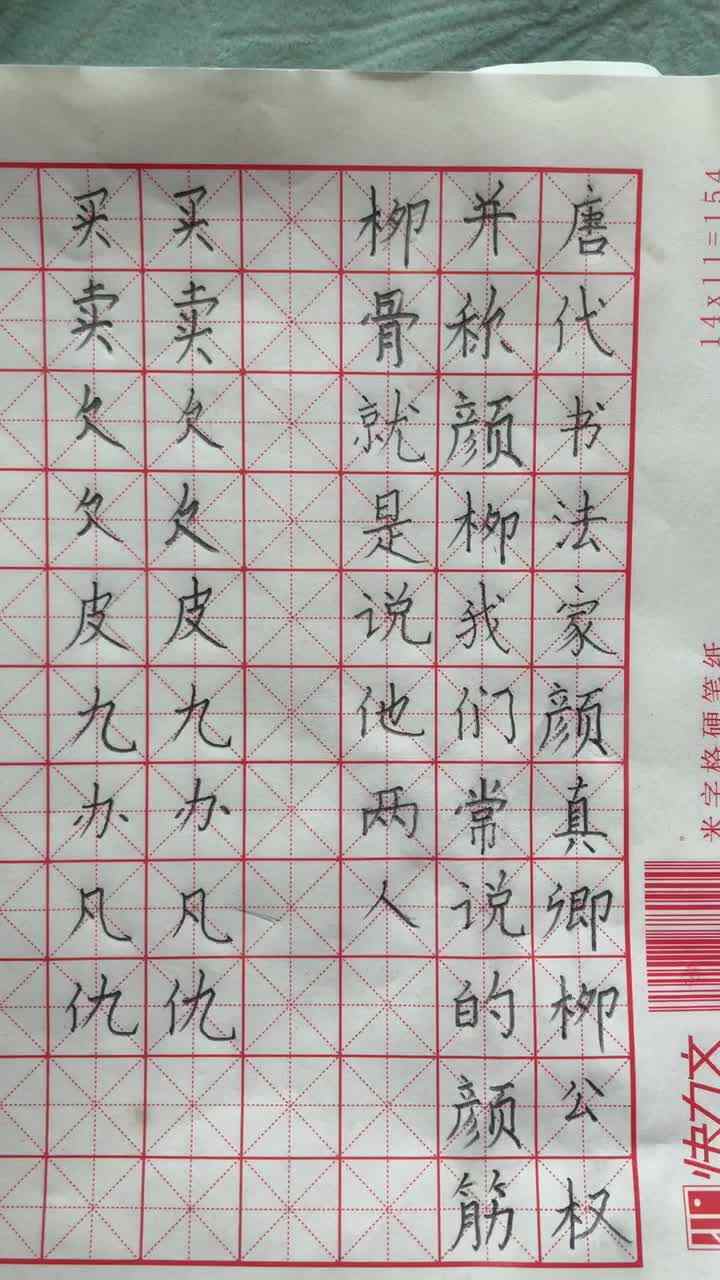 唐代书法家颜真卿柳公权
并称颜柳我们常说的颜筋
柳骨就是说他两人
买卖欠欠皮九办凡仇
买卖欠欠皮九办凡仇
14x11=154
米字格硬笔纸
快力文